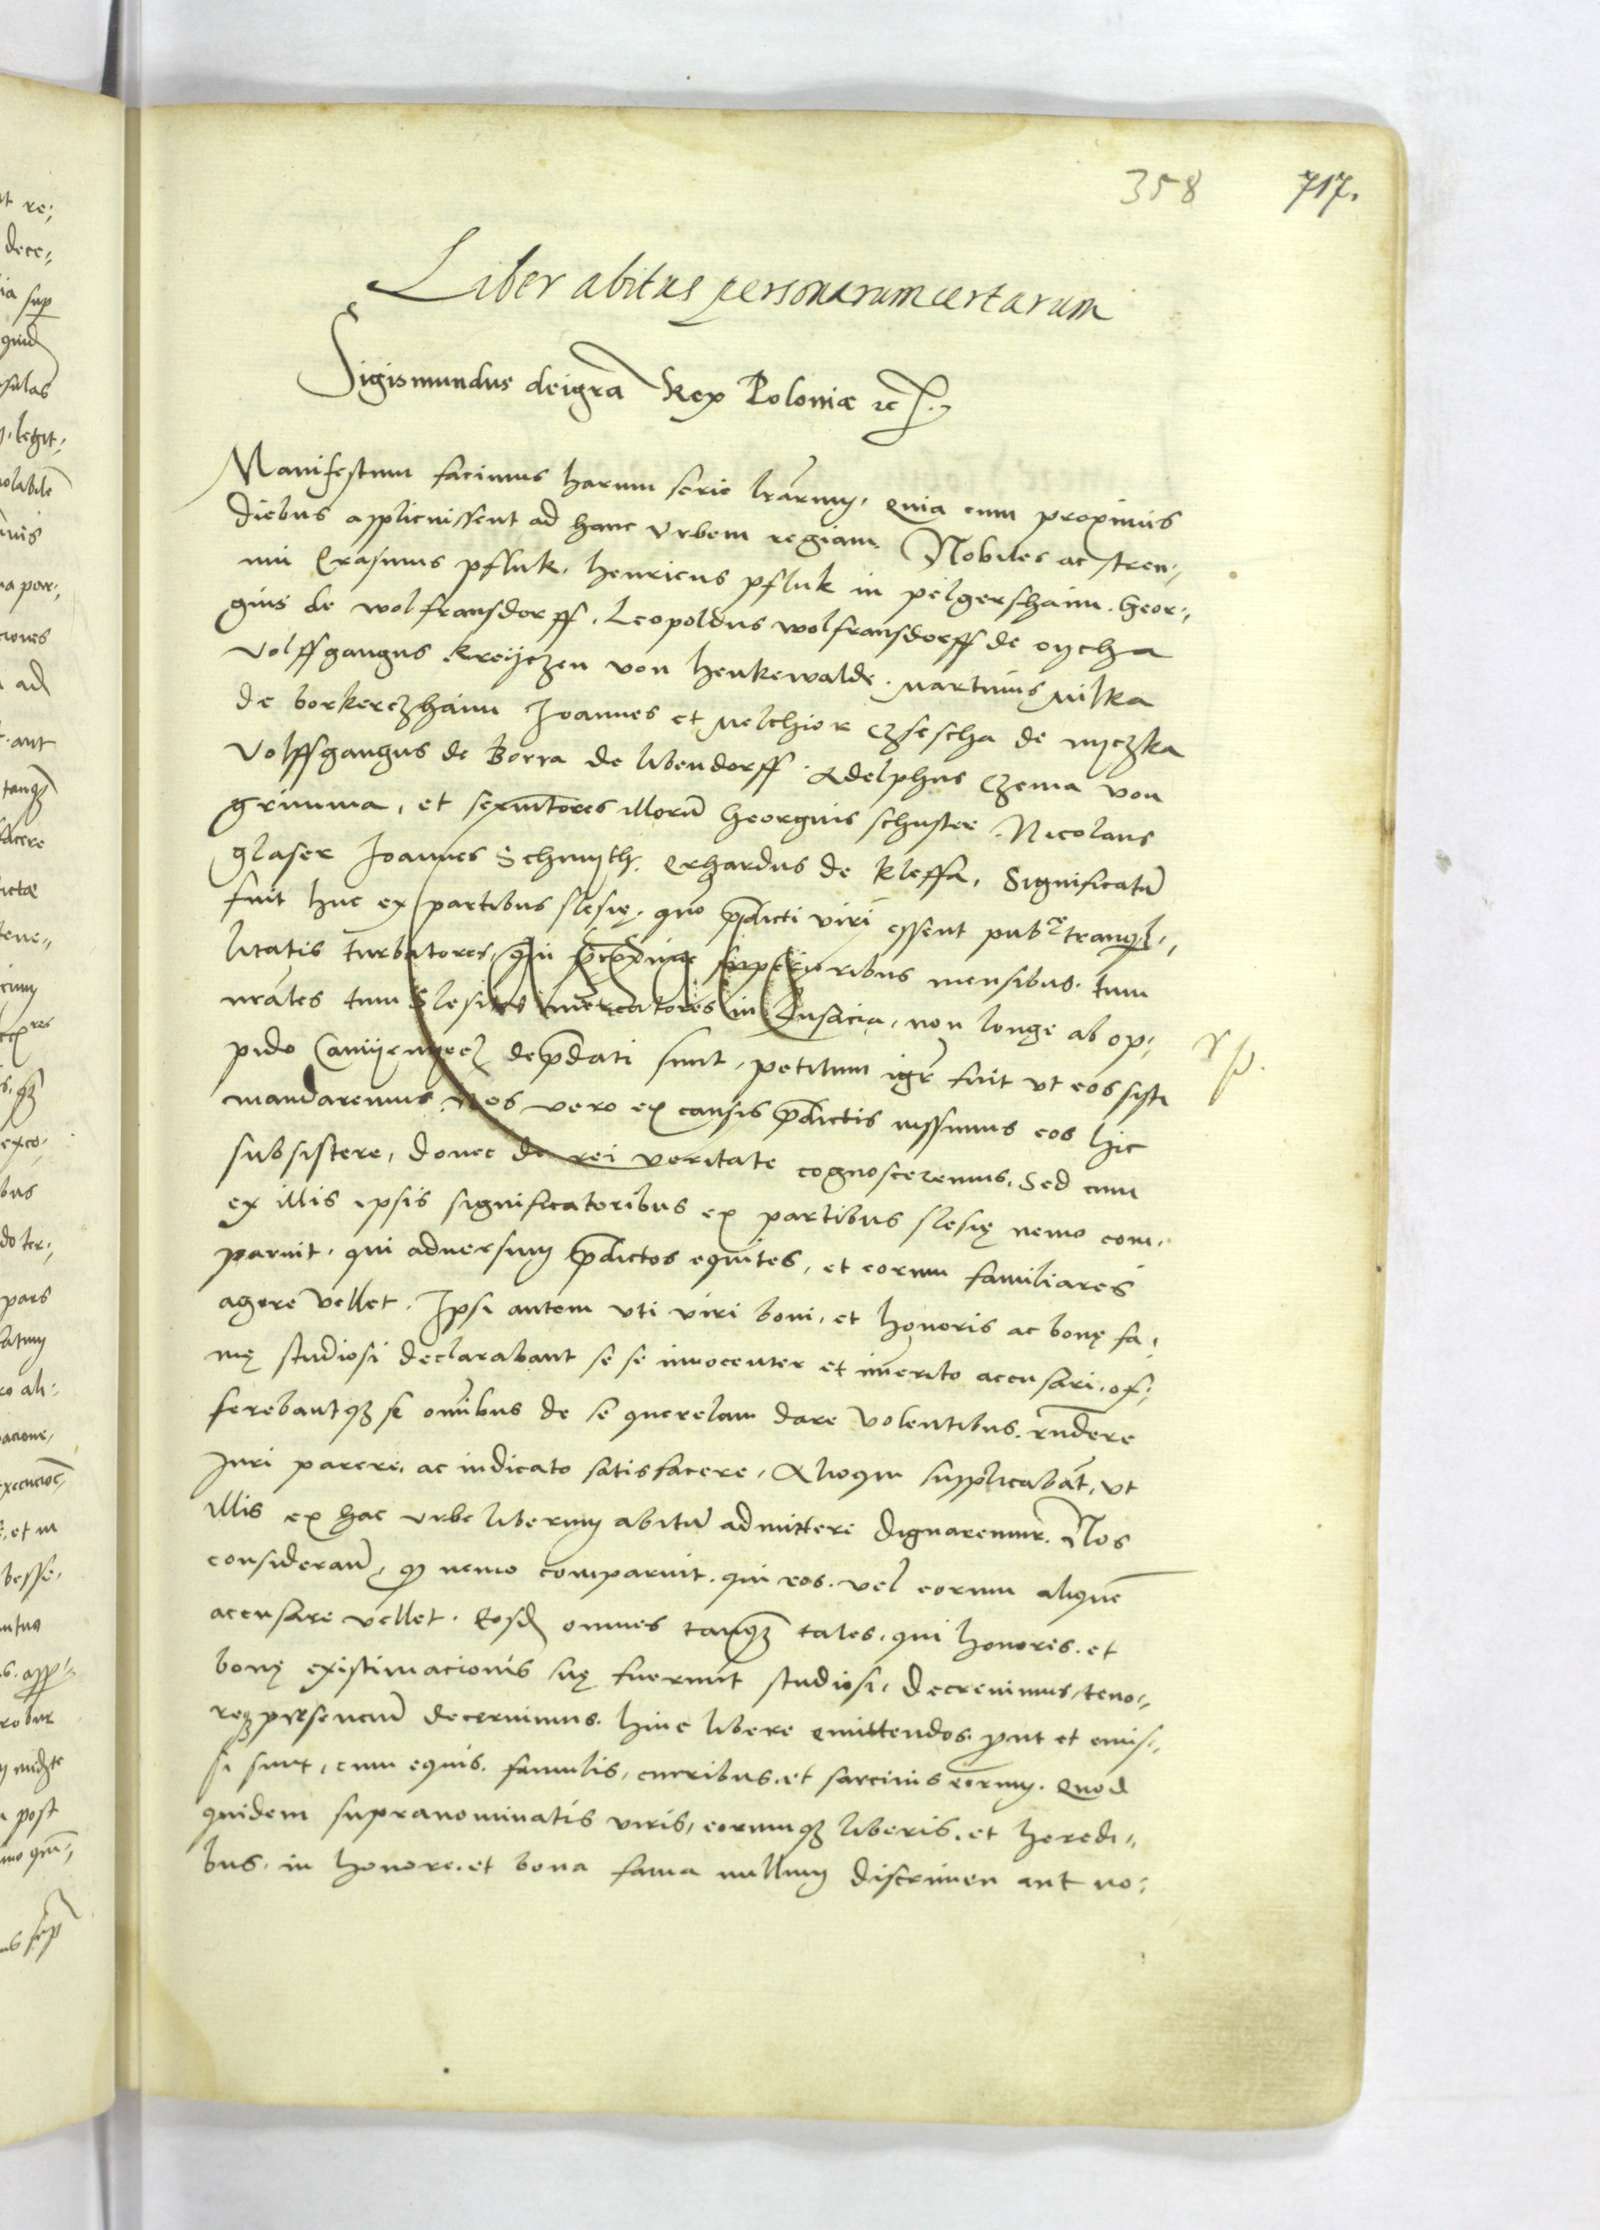 358 717.
Liber abitus personarum certarum
Sigismundus dei gra Rex Poloniæ
Manifestum facimus harum serie lrarum, Quia cum proximis
diebus applicuissent ad hanc Vrbem regiam Nobiles ac stren:
nui Erasmus pfluk, henricus pfluk in pelgershaim. Geor:
gius de wolfransdorff. Leopoldus wolfransdorff de oycha
Volffgangus kreyczen von henkewalde. Martinus Milka
de borkerczhaim Joannes et Melchior Czsescha de nyczka
Volffgangus de Borra de libendorff. Adelphus Czema von
grimma, et seruitores illorū Georgius schuster. Nicolaus
glaser Joannes Schmyth. Erhardus de kleffa, Significatū
fuit huc ex partibus slesię. quo prdicti viri essent pubce tranql:
litatis turbatores, superioribus mensibus. tum
nrates tum Slesitas mercatores in Lusacia, non longe ab op:
pido depdati sunt, petitum igr fuit vt eos sisti
mandaremus. Nos vero ex causis pdictis iussimus eos hic
subsistere, donec de rei veritate cognosceremus. Sed cum
ex illis ipsis significatoribus ex partibus slesię nemo com:
paruit. qui aduersum pdictos equites, et eorum familiares
agere vellet. Ipsi autem vti viri boni, et honoris ac bonę fa:
mę studiosi declarabant se se innocenter et imerito accusari. of:
ferebantqz se omibus de se querelam dare volentibus. rndere
Juri parere, ac iudicato satisfacere, Alioqui supplicabāt, vt
illis ex hac vrbe liberum abitū admittere dignaremur. Nos
consideran, qd nemo comparuit. qui eos. vel eorum aliquē
accusare vellet. Eosd omnes tanqz tales, qui honoris. et
bonę existimacionis suę fuerunt studiosi, decreuimus, teno:
reqz presenciū decernimus. hinc libere emittendos. put et emis:
si sunt, cum equis. famulis, curribus. et sarcinis eorum. Quod
quidem supranominatis viris, eorumqz liberis. et heredi:
bus. in honore. et bona fama nullum discrimen aut no: